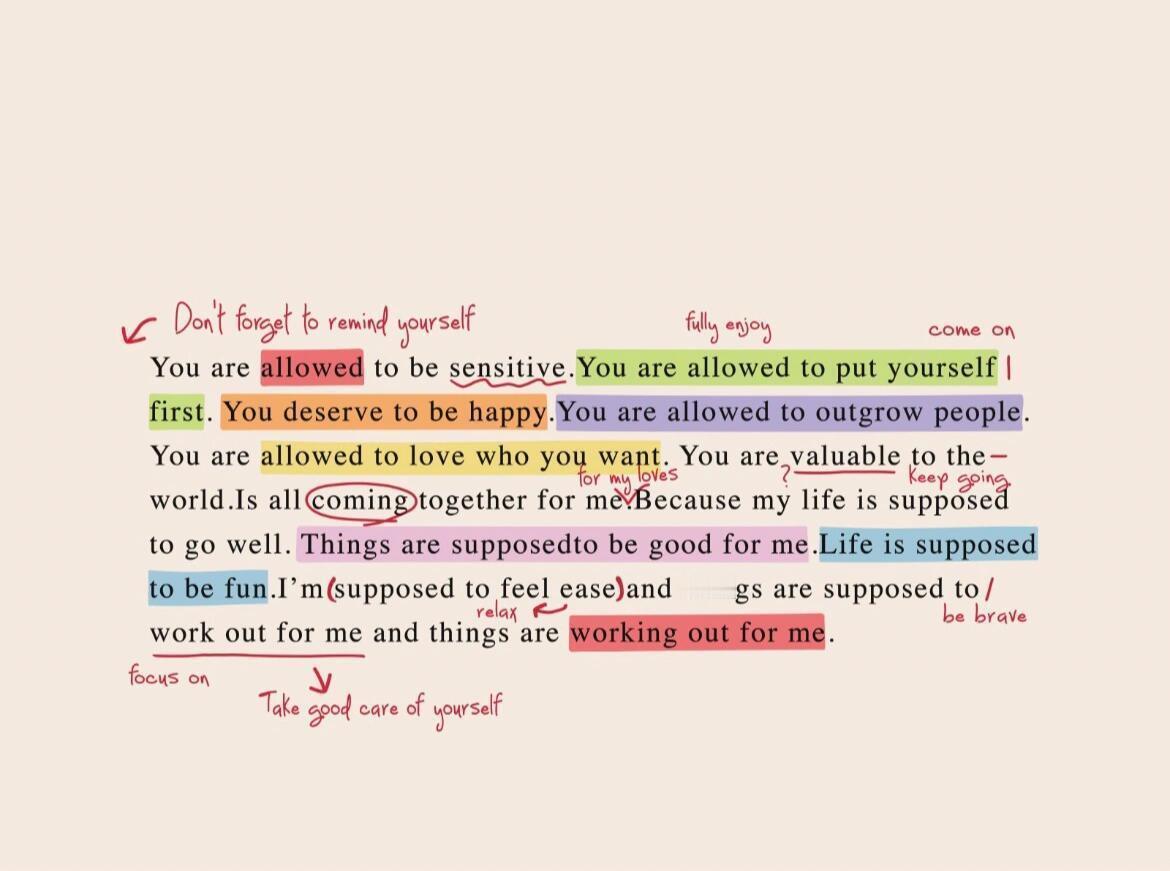 Don't forget to remind yourself
fully enjoy
come on
You are allowed to be sensitive.You are allowed to put yourself |
first. You deserve to be happy.You are allowed to outgrow people.
You are allowed to love who you want. You are valuable to the–
for my loves ? keep going
world.Is all coming together for me.Because my life is supposed
to go well. Things are supposedto be good for me.Life is supposed
to be fun.I'm(supposed to feel ease)and gs are supposed to/
relax
be brave
work out for me and things are working out for me.
focus on
Take good care of yourself